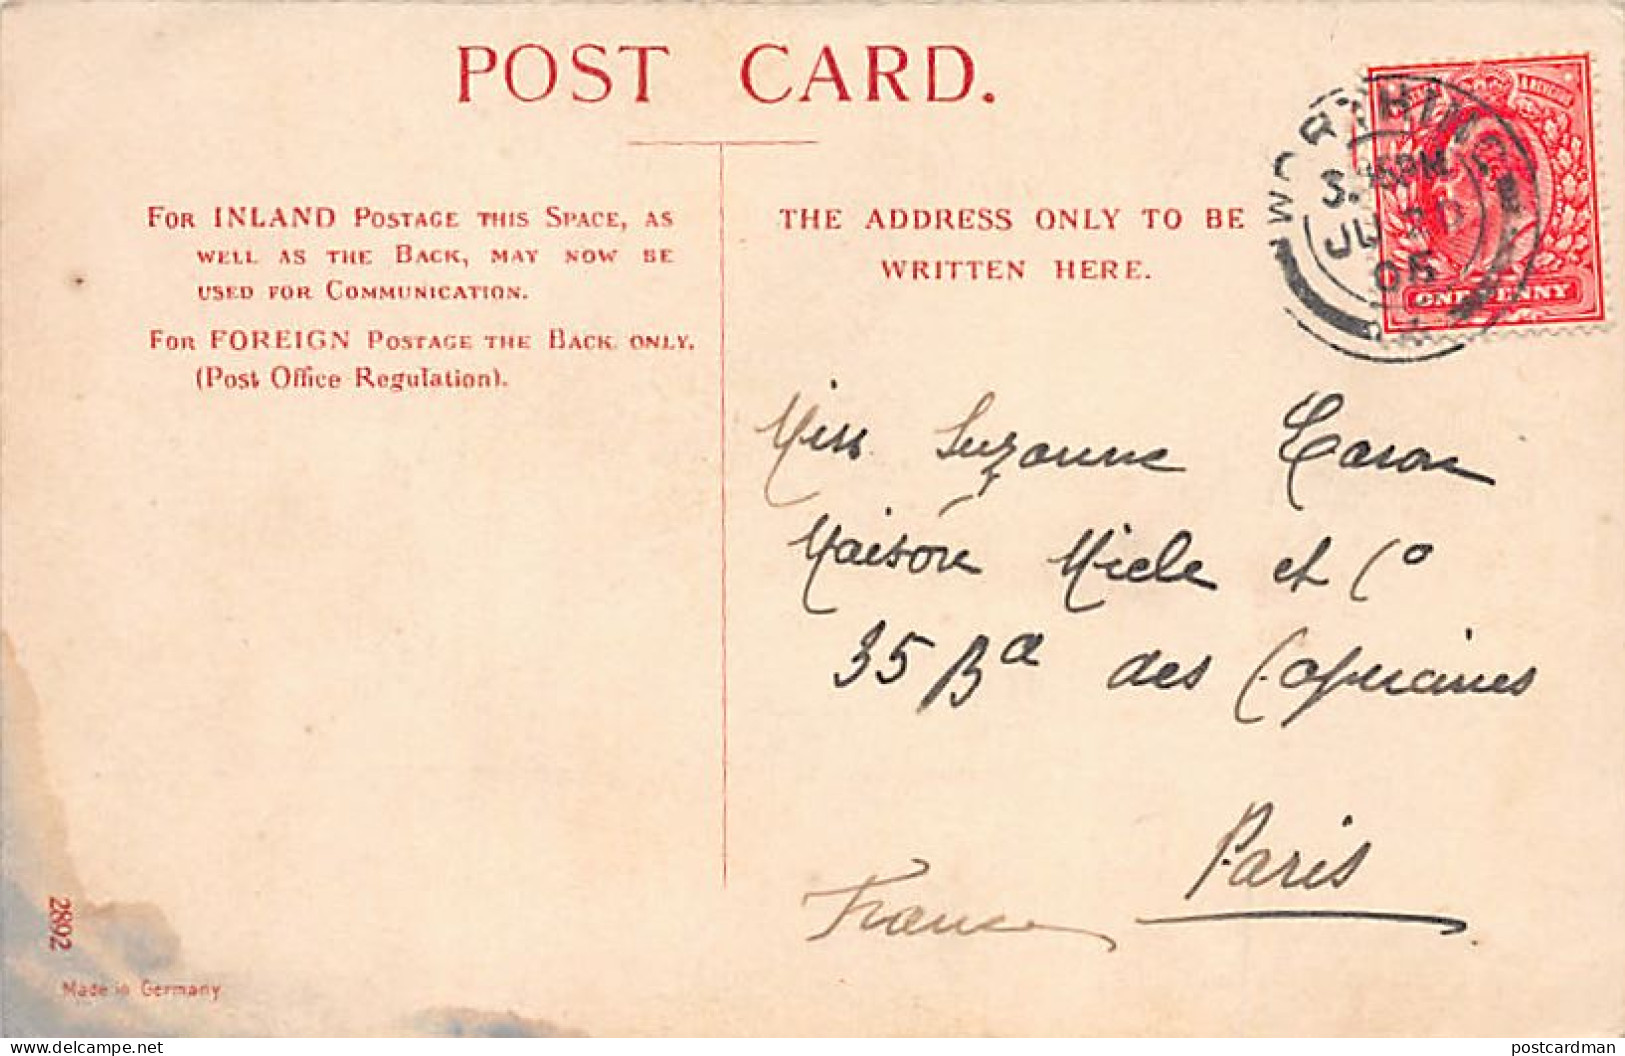 POST CARD.
FOR INLAND POSTAGE THIS SPACE, AS
WELL AS THE BACK, MAY NOW BE
USED FOR COMMUNICATION.
FOR FOREIGN POSTAGE THE BACK ONLY.
(Post Office Regulation).
THE ADDRESS ONLY TO BE
WRITTEN HERE.
WORTHING
PM
05
ONE PENNY
Miss Suzanne Caron
Maison Miele et Co
35 Bd des Capucines
Paris
France
2892
Made in Germany
delcampe.net
postcardman